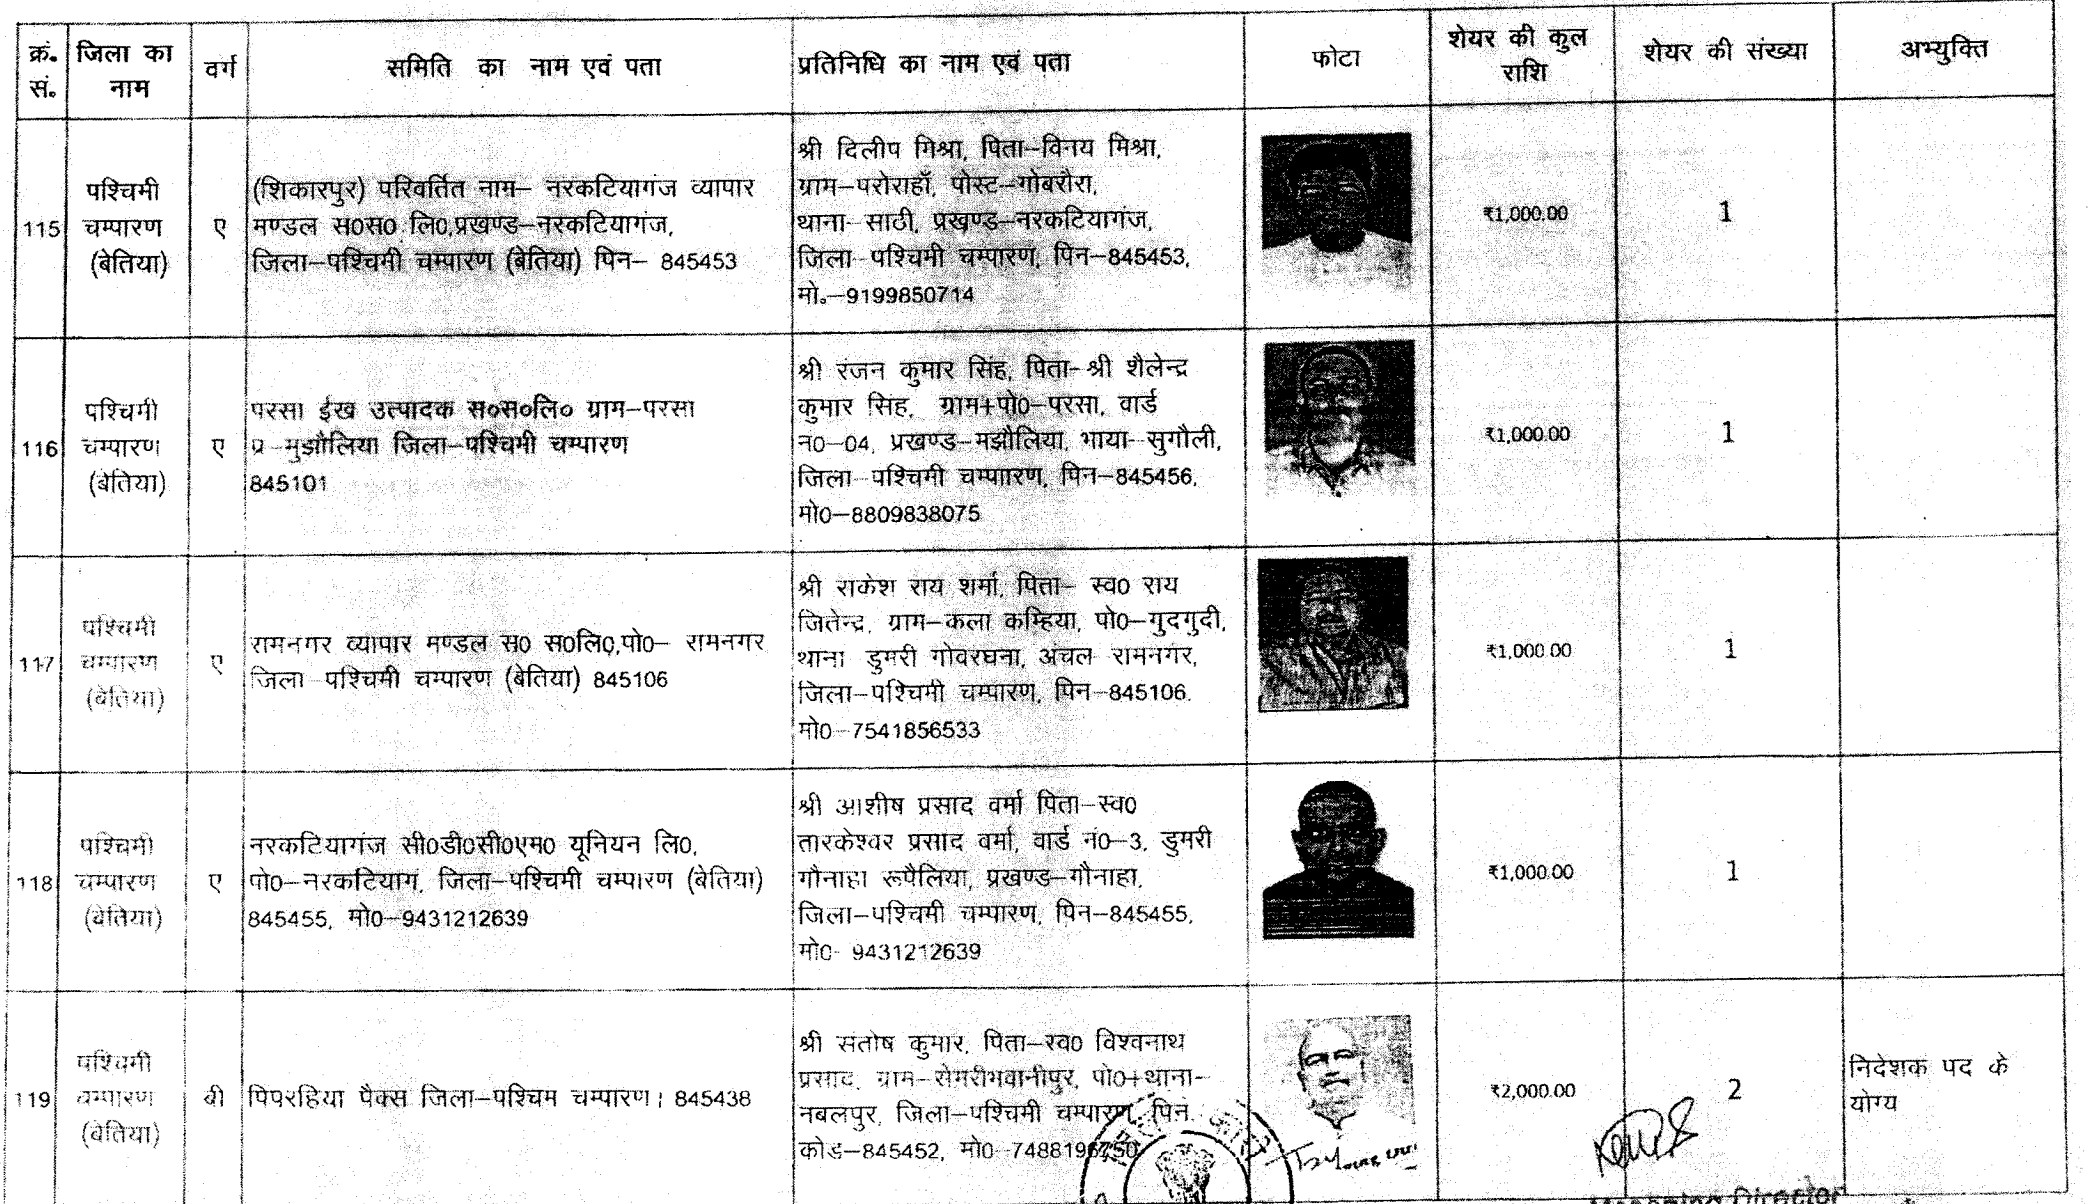 क्रं. सं. जिला का नाम वर्ग समिति का नाम एवं पता प्रतिनिधि का नाम एवं पता फोटा शेयर की कुल राशि शेयर की संख्या अभ्युक्ति
115
पश्चिमी
चम्पारण
(बेतिया)
ए
(शिकारपुर) परिवर्तित नाम– नरकटियागंज व्यापार
मण्डल स0स0 लि0,प्रखण्ड–नरकटियागंज,
जिला–पश्चिमी चम्पारण (बेतिया) पिन– 845453
श्री दिलीप मिश्रा, पिता–विनय मिश्रा,
ग्राम–परोराहाँ, पोस्ट–गोबरौरा,
थाना– साठी, प्रखण्ड–नरकटियागंज,
जिला–पश्चिमी चम्पारण, पिन–845453,
मो.–9199850714
₹1,000.00
1
116
पश्चिमी
चम्पारण
(बेतिया)
ए
परसा ईख उत्पादक स०स०लि० ग्राम–परसा
प्र–मुझौलिया जिला–पश्चिमी चम्पारण
845101
श्री रंजन कुमार सिंह, पिता–श्री शैलेन्द्र
कुमार सिंह, ग्राम+पो0–परसा, वार्ड
न0–04, प्रखण्ड–मझौलिया, भाया–सुगौली,
जिला–पश्चिमी चम्पाारण, पिन–845456,
मो0–8809838075
₹1,000.00
1
117
पश्चिमी
चम्पारण
(बेतिया)
ए
रामनगर व्यापार मण्डल स0 स0लि0,पो0– रामनगर
जिला–पश्चिमी चम्पारण (बेतिया) 845106
श्री राकेश राय शर्मा, पिता– स्व0 राय
जितेन्द्र, ग्राम–कला कम्हिया, पो0–गुदगुदी,
थाना–डुमरी गोवरघना, अंचल–रामनगर,
जिला–पश्चिमी चम्पारण, पिन–845106.
मो0–7541856533
₹1,000.00
1
118
पश्चिमी
चम्पारण
(बेतिया)
ए
नरकटियागंज सी0डी0सी0एम0 यूनियन लि0,
पो0–नरकटियाग, जिला–पश्चिमी चम्पारण (बेतिया)
845455, मो0–9431212639
श्री आशीष प्रसाद वर्मा पिता–स्व0
तारकेश्वर प्रसाद वर्मा, वार्ड नं0–3, डुमरी
गौनाहा रूपैलिया, प्रखण्ड–गौनाहा,
जिला–पश्चिमी चम्पारण, पिन–845455,
मो0- 9431212639
₹1,000.00
1
119
पश्चिमी
चम्पारण
(बेतिया)
बी
पिपरहिया पैक्स जिला–पश्चिम चम्पारण। 845438
श्री संतोष कुमार, पिता–स्व0 विश्वनाथ
प्रसाद, ग्राम–सेमरीभवानीपुर, पो0+थाना–
नबलपुर, जिला–पश्चिमी चम्पारण, पिन
कोड–845452, मो0–7488196750
₹2,000.00
2
निदेशक पद के
योग्य
Managing Director